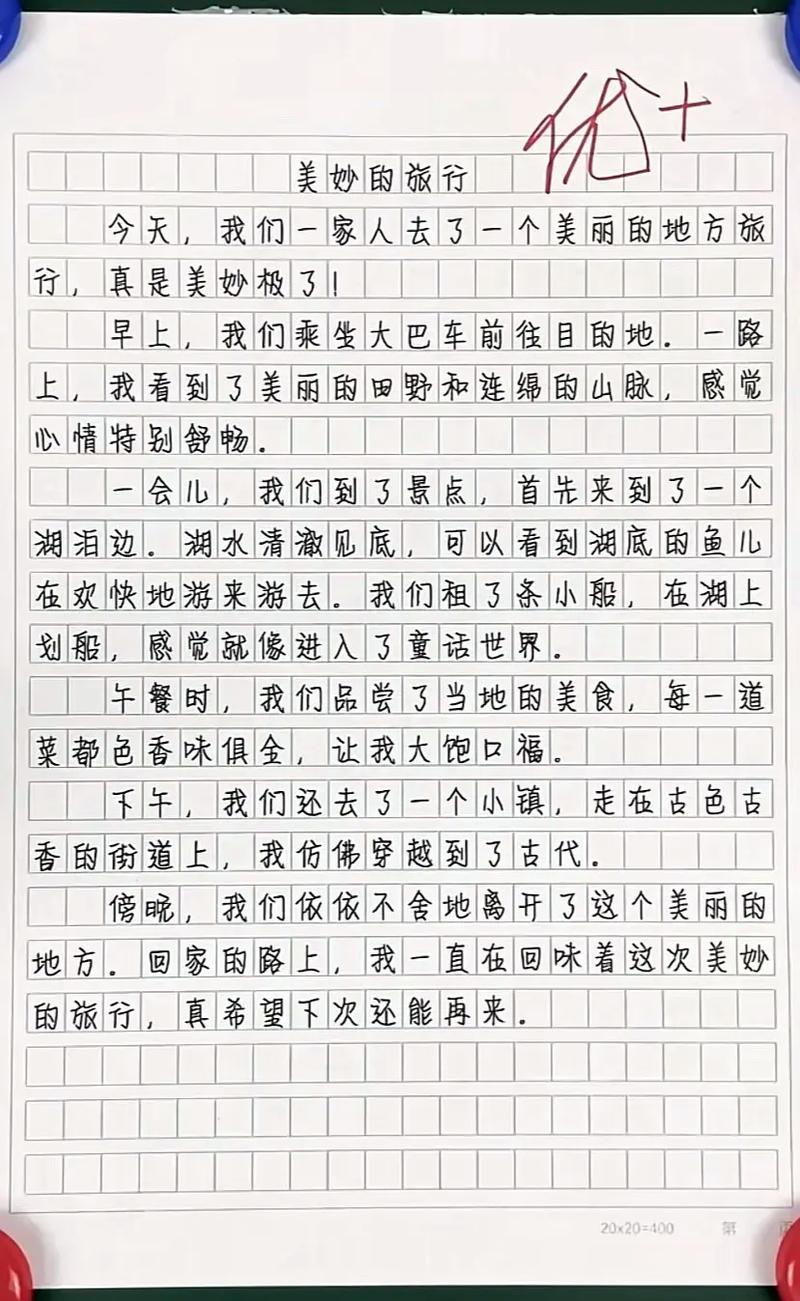 优+
美妙的旅行
今天，我们一家人去了一个美丽的地方旅
行，真是美妙极了！
早上，我们乘坐大巴车前往目的地。一路
上，我看到了美丽的田野和连绵的山脉，感觉
心情特别舒畅。
一会儿，我们到了景点，首先来到了一个
湖泊边。湖水清澈见底，可以看到湖底的鱼儿
在欢快地游来游去。我们租了条小船，在湖上
划船，感觉就像进入了童话世界。
午餐时，我们品尝了当地的美食，每一道
菜都色香味俱全，让我大饱口福。
下午，我们还去了一个小镇，走在古色古
香的街道上，我仿佛穿越到了古代。
傍晚，我们依依不舍地离开了这个美丽的
地方。回家的路上，我一直在回味着这次美妙
的旅行，真希望下次还能再来。
20x20=400 第